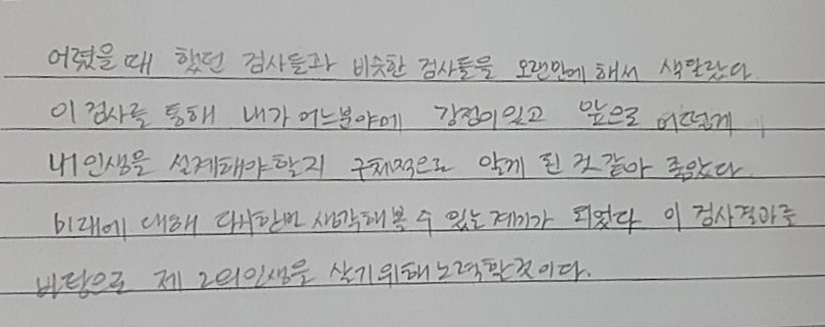 어렸을때 했던 검사들과 비슷한 검사들을 오랜만에 해서 색달랐다.
이 검사를 통해 내가 어느분야에 강점이있고 앞으로 어떻게
내 인생을 설계해야할지 구체적으로 알게 된 것 같아 좋았다.
미래에 대해 다시한번 생각해볼 수 있는 계기가 되었다 이 검사결과를
바탕으로 제 2의인생을 살기위해 노력할것이다.